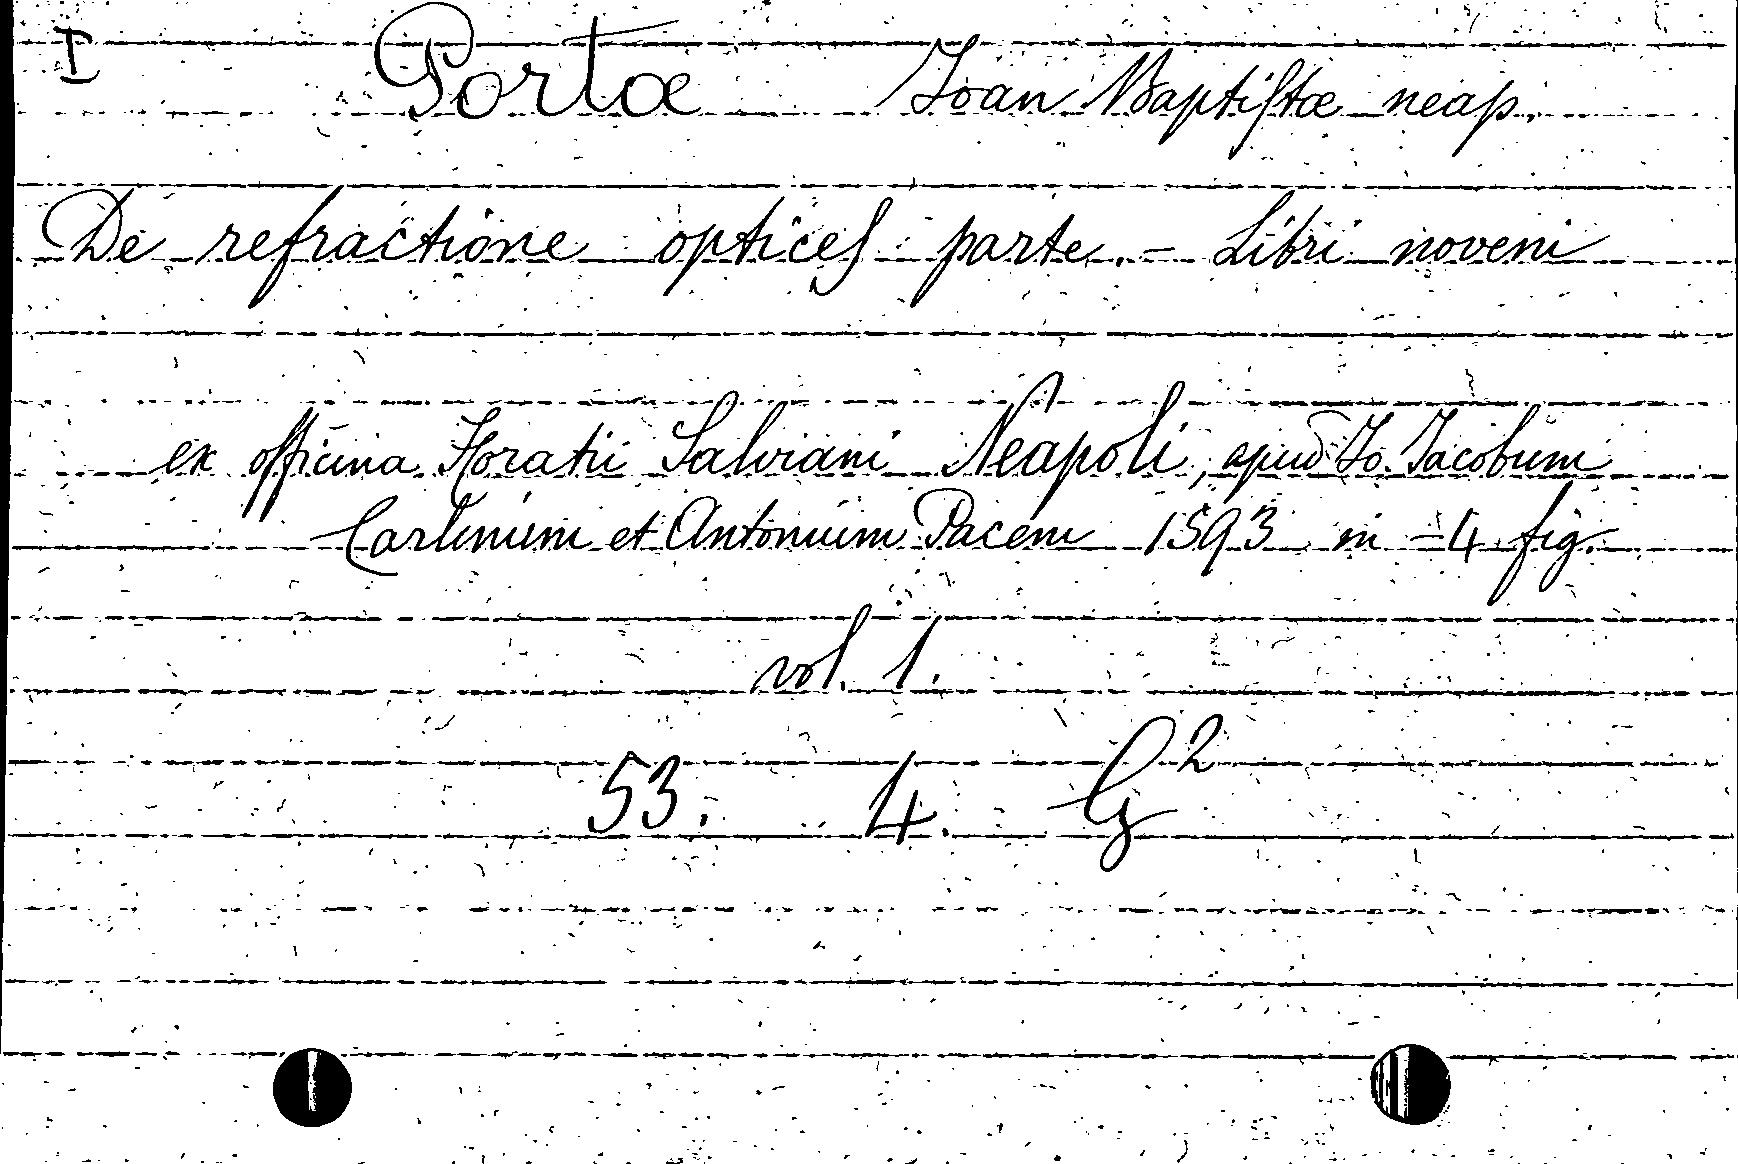 I Portæ Joan Baptistæ neap.
De refractione optices parte. - Libri noveni
ex officina Horatii Salviani Neapoli, apud Jo. Jacobum
Carlinum et Antonium Pacem 1593 in -4 fig.
vol. 1.
53. 4. G²